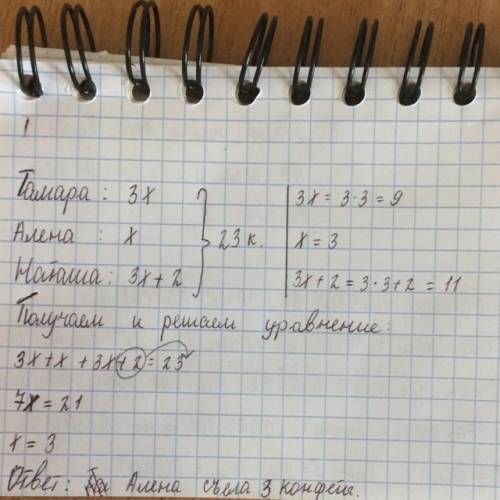 1
Тамара: 3x 3x = 3·3 = 9
Алена: x } 23 к. x = 3
Наташа: 3x + 2 3x + 2 = 3·3 + 2 = 11
Получаем и решаем уравнение:
3x + x + 3x + 2 = 23
7x = 21
x = 3
Ответ: Алена съела 3 конфеты.